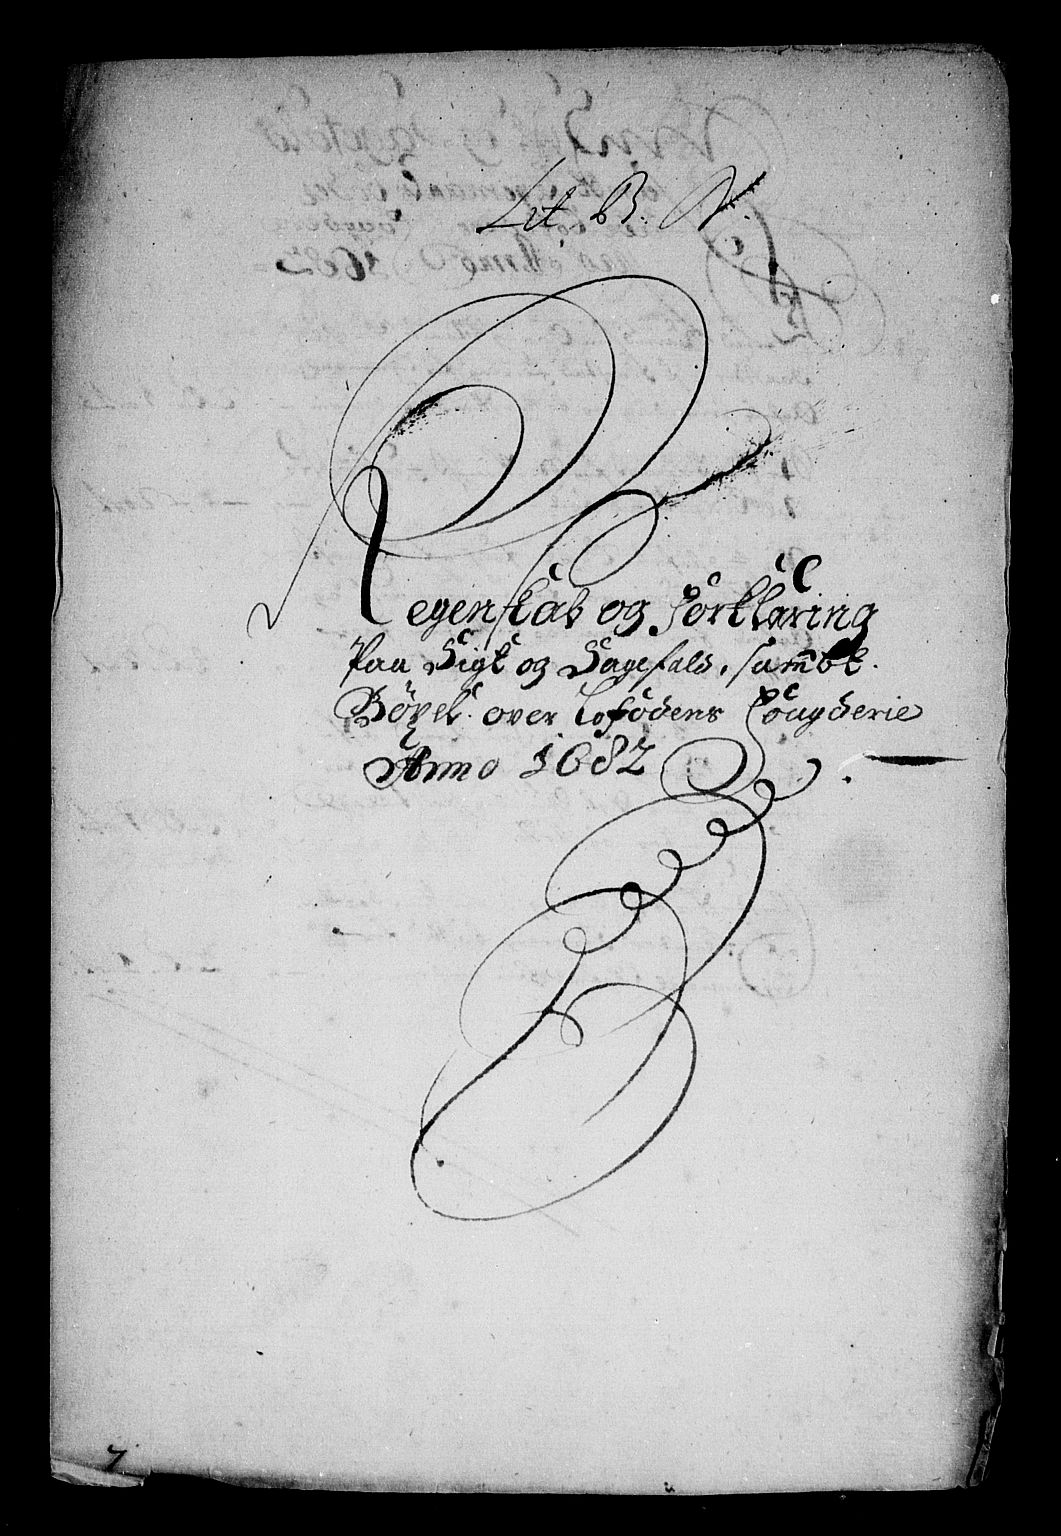 Lit B. N.
Regenskab og Forklaring
Paa Sigt og Sagefald, sambt.
Böxel. over Lofodens Fougderie
Anno 1682
7